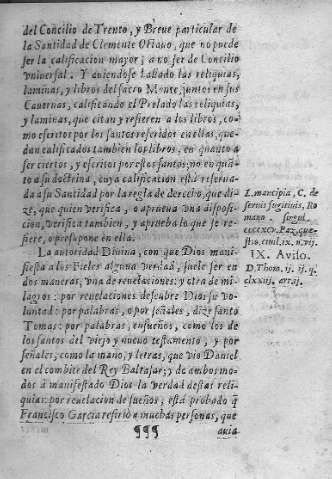 del Concilio de Trento, y Breue particular de
la Santidad de Clemente Otauo, que no puede
ser la calificacion mayor; a no ser de Concilio
Vniuersal. Y auiendose hallado las reliquias,
laminas, y libros del sacro Monte, juntos en sus
Cauernas, calificando el Prelado las reliquias,
y laminas, que citan y refieren a los libros, co-
mo escritos por los santos referidos en ellas, que-
dan calificados tambien los libros, en quanto a
ser ciertos, y escritos por estos santos; no en quã-
to a su doctrina, cuya calificacion està reserua-
da a su Santidad por la regla de derecho, que di-
ze, que quien verifica, o aprueua vna disposi-
cion, verifica tambien, y aprueba lo que se re-
fiere, o presupone en ella.
La autoridad Diuina, con que Dios mani-
fiesta a los Fieles alguna verdad, suele ser en
dos maneras, vna de reuelaciones: y otra de mi-
lagros: por reuelaciones descubre Dios su vo-
luntad: por palabras, o por señales, dize santo
Tomas: por palabras, en sueños, como los de
los santos del viejo y nueuo testamento, y por
señales, como la mano, y letras, que vio Daniel
en el combite del Rey Baltasar; y de ambos mo-
dos à manifestado Dios la verdad destas reli-
quias: por reuelacion de sueños; està probado q̃
Francisco Garcia refirio a muchas personas, que
¶¶¶
auia
L. mancipia, C. de
seruis fugitiuis, Ro
mano
singul.
Paz, que-
stio, ciuil, ix. n. vij.
IX. Auiso.
D. Thom. ij. ij. q.
clxxiij, art. ij.